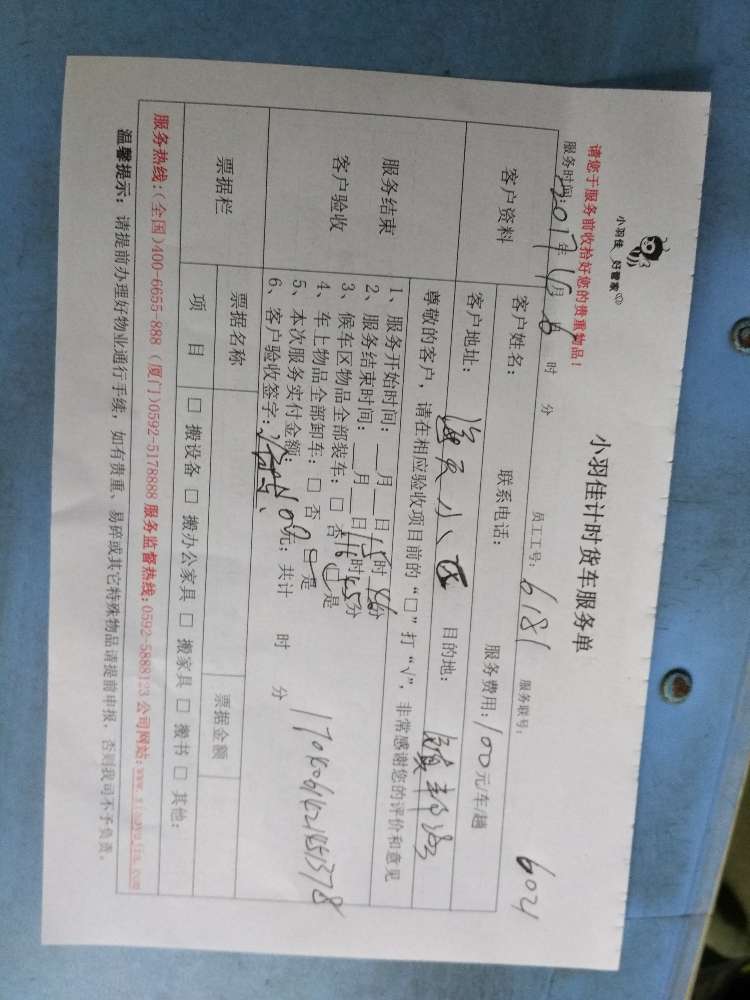 小羽佳 好管家
小羽佳计时货车服务单
请您于服务前收拾好您的贵重物品！
服务时间：2017年 月 6 时 分 员工工号：6181 服务联号： 6021
客户资料
客户姓名： 联系电话： 服务费用：100元/车/趟
客户地址： 海天小区 目的地：
服务结束
客户验收
尊敬的客户，请在相应验收项目前的“□”打“√”，非常感谢您的评价和意见
1、服务开始时间：__月__日15时46分
2、服务结束时间：__月__日16时45分
3、候车区物品全部装车：□ 否 □ 是
4、车上物品全部卸车：□ 否 □ 是
5、本次服务实付金额： 元；共计 时 分
6、客户验收签字：
票据栏
票据名称 票据金额
项 目 □ 搬设备 □ 搬办公家具 □ 搬家具 □ 搬书 □ 其他：
服务热线：(全国)400-6655-888 (厦门)0592-5178888 服务监督热线：0592-5888123 公司网站：www.xiaoyujia.com
温馨提示：请提前办理好物业通行手续，如有贵重、易碎或其它特殊物品请提前申报，否则我司不予负责。